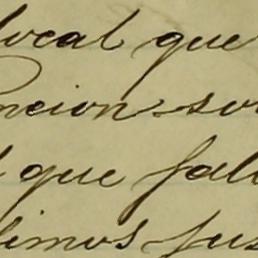 local que
ncion so
que fal
imos jus